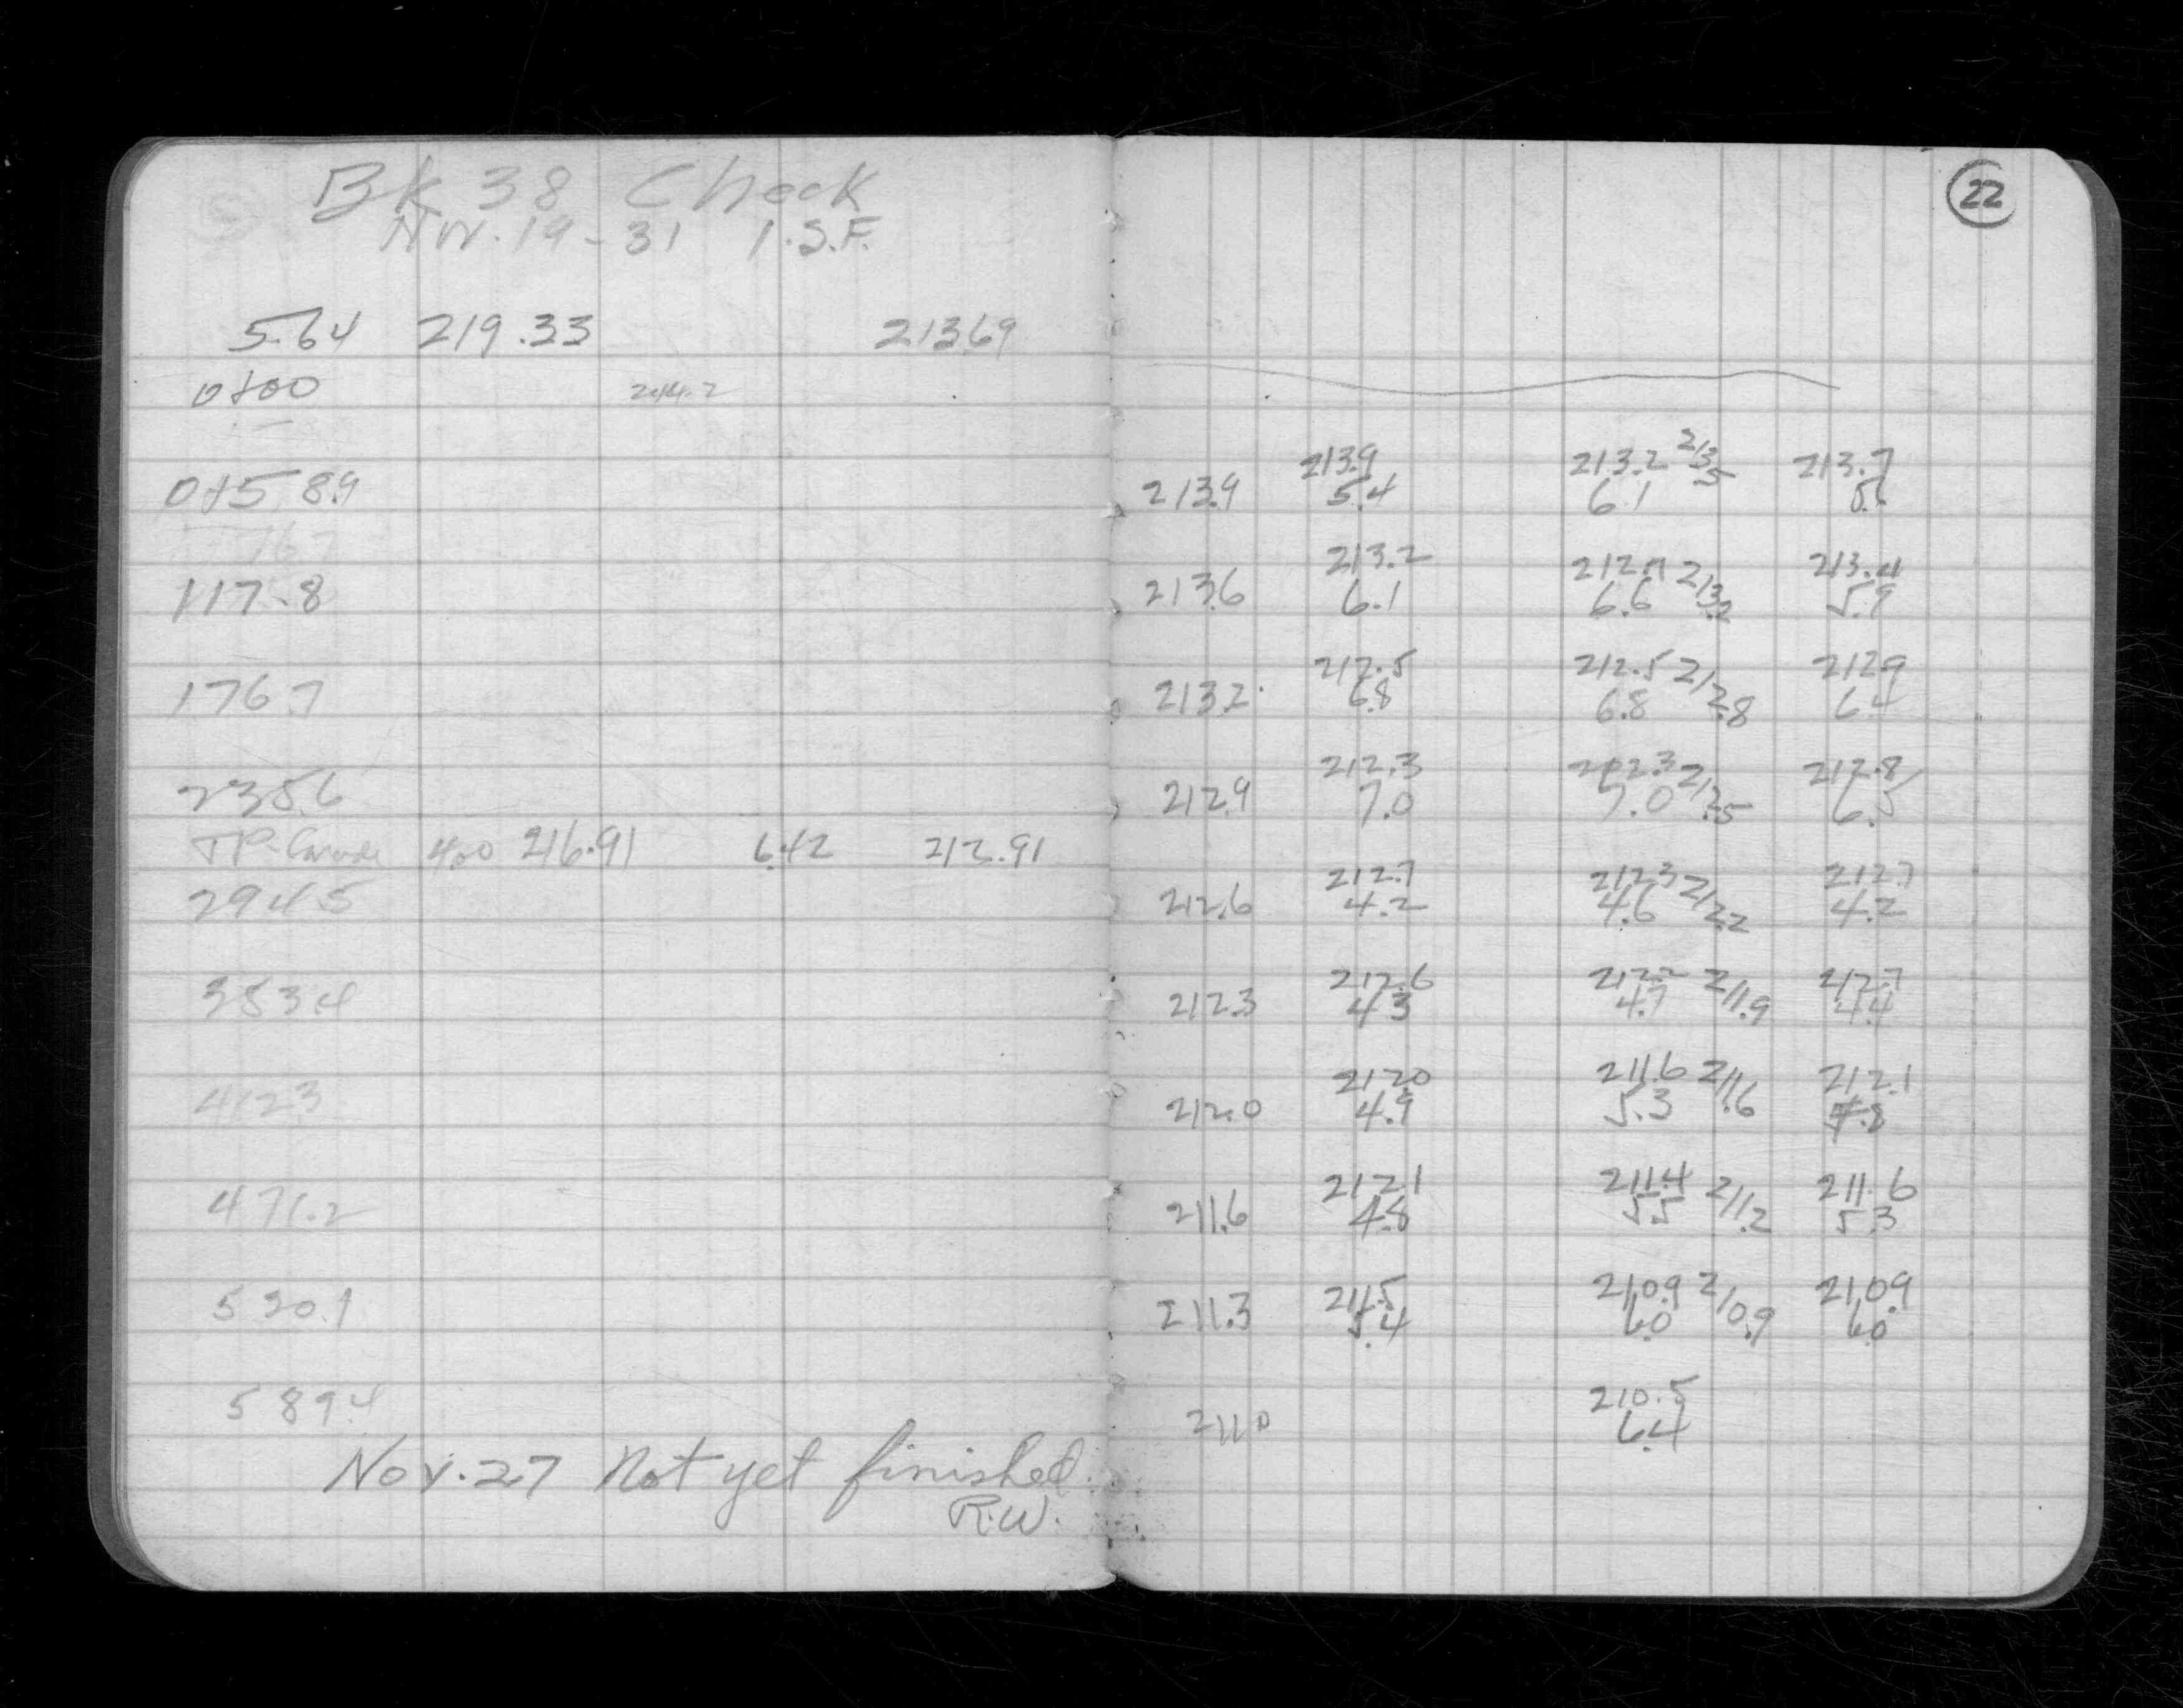 Bk 38 Check
Nov. 19-31 I.S.F.
5.64 219.33 213.69
0+00 214.2
0+58.9
117.8
176.7
235.6
TP 4.00 216.91 6.42 212.91
294.5
353.4
412.3
471.2
530.1
589.4
Nov. 27 Not yet finished.
R.W.
22
213.9 213.2 213.5 213.7
213.9 5.4 6.1 5.6
213.2 212.7 213.2 213.4
213.6 6.1 6.6 5.9
212.5 212.5 212.8 212.9
213.2 6.8 6.8 6.4
212.3 212.3 212.5 212.8
212.9 7.0 7.0 6.5
212.7 212.3 212.2 212.7
212.6 4.2 4.6 4.2
212.6 212.2 211.9 212.7
212.3 4.3 4.7 4.4
212.0 211.6 211.6 212.1
212.0 4.9 5.3 4.8
212.1 211.4 211.2 211.6
211.6 4.8 5.5 5.3
211.5 210.9 210.9 210.9
211.3 5.4 6.0 6.0
210.5
211.0 6.4